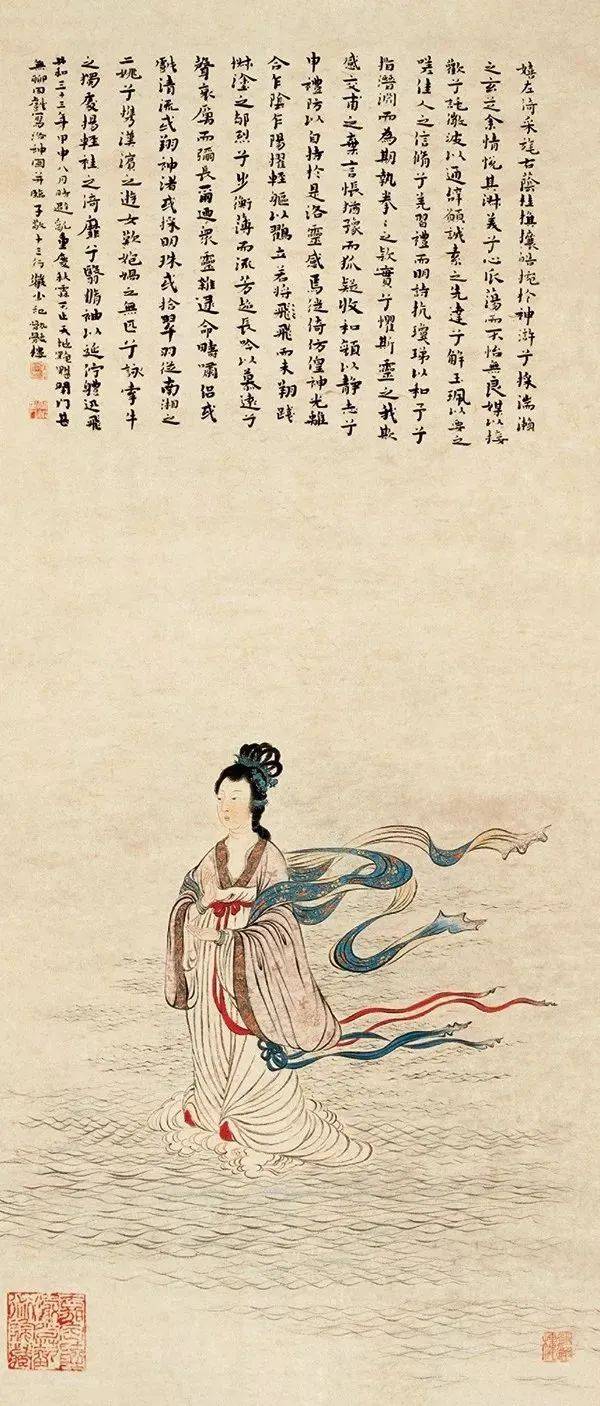 嬉左倚采旄右蔭桂旗攘皓捥於神滸兮採湍瀨
之玄芝余情悅其淑美兮心振蕩而不怡無良媒以接
歡兮託微波以通辭願誠素之先達兮解玉珮以要之
嗟佳人之信脩兮羌習禮而明詩抗瓊珶以和予兮
指潛淵而為期執拳々之款實兮懼斯靈之我欺
感交甫之棄言悵猶豫而狐疑收和顏以靜志兮
申禮防以自持於是洛靈感焉徙倚仿偟神光離
合乍陰乍陽擢輕軀以鶴立若將飛而未翔踐
椒塗之郁烈兮步衡薄而流芳超長吟以慕遠兮
聲哀厲而彌長爾迺眾靈雜遝命疇嘯侶或
戲清流或翔神渚或採明珠或拾翠羽從南湘之
二姚兮攜漢濱之遊女歎匏媧之無匹兮詠牽牛
之獨處揚輕袿之倚靡兮翳脩袖以延佇體迅飛
共和三十三年甲申八月時避亂重慶秋霖不止天地黯黮閉門甚
無聊因戲寫洛神圖并臨子敬十三行小記